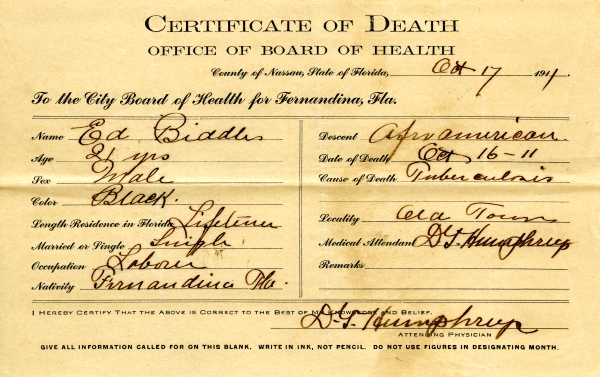 CERTIFICATE OF DEATH
OFFICE OF BOARD OF HEALTH
County of Nassau, State of Florida, Oct 17 1911.
To the City Board of Health for Fernandina, Fla.
Name Ed Biddles
Age 21 yrs
Sex Male
Color Black.
Length Residence in Florida Lifetime
Married or Single Single
Occupation Laborer
Nativity Fernandina Fla.
Descent Afroamerican
Date of Death Oct 16-11
Cause of Death Tuberculosis
Locality Old Town
Medical Attendant Humphreys
Remarks
I HEREBY CERTIFY THAT THE ABOVE IS CORRECT TO THE BEST OF MY KNOWLEDGE AND BELIEF.
Humphreys
ATTENDING PHYSICIAN
GIVE ALL INFORMATION CALLED FOR ON THIS BLANK. WRITE IN INK, NOT PENCIL. DO NOT USE FIGURES IN DESIGNATING MONTH.